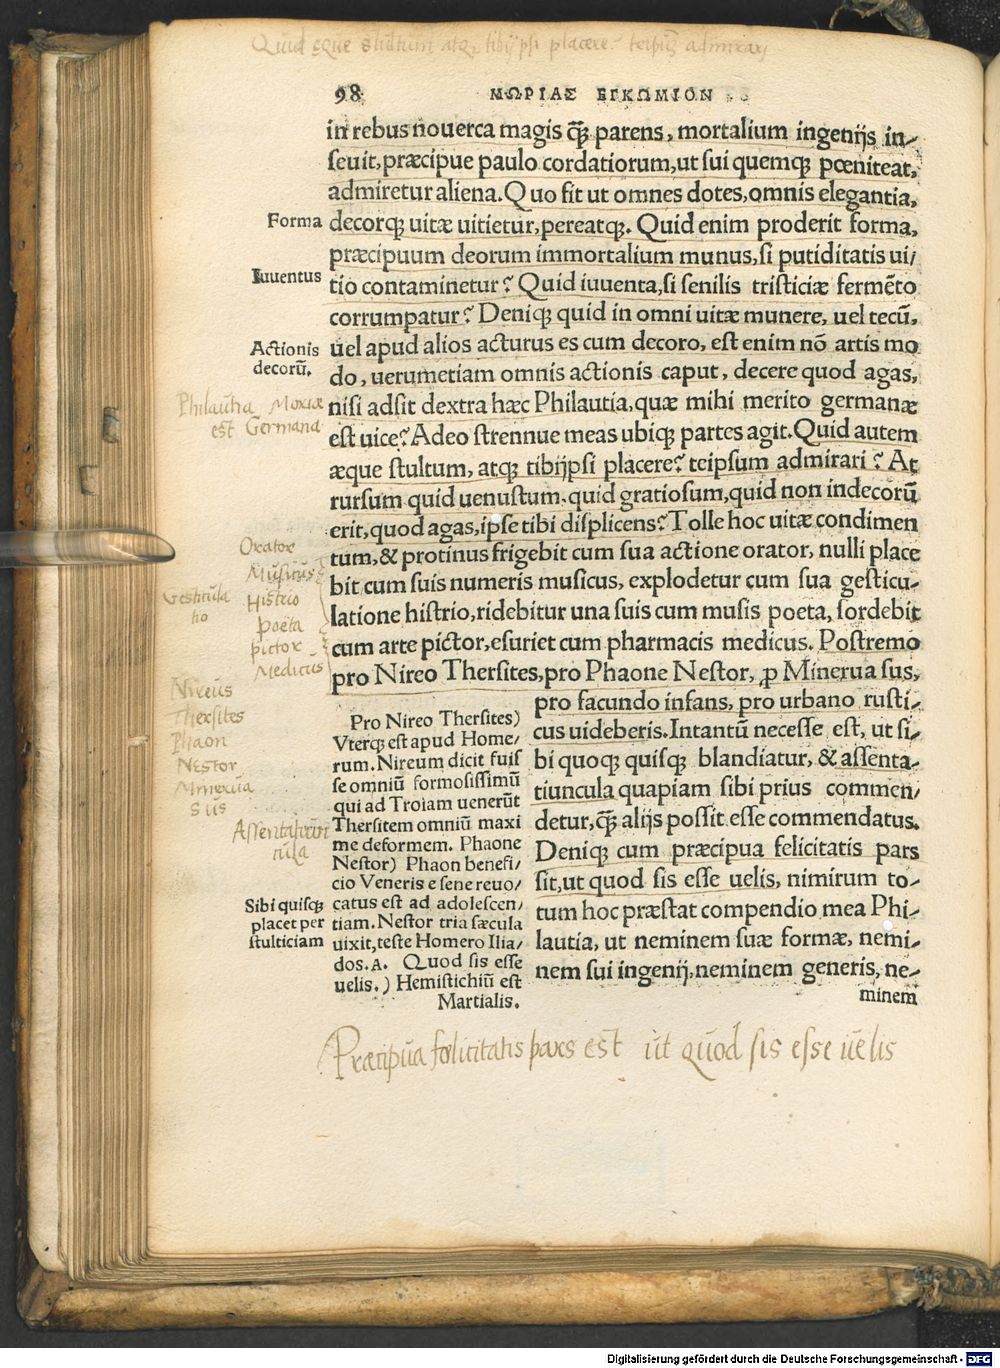 Quid eque stultum atq; tibijpsi placere? teipsū admirari
98 ΜΩΡΙΑΣ ΕΓΚΩΜΙΟΝ
in rebus nouerca magis q̃ꝫ parens, mortalium ingenijs in-
seuit, præcipue paulo cordatiorum, ut sui quemqꝫ pœniteat,
admiretur aliena. Quo fit ut omnes dotes, omnis elegantia,
Forma
decorqꝫ uitæ uitietur, pereatqꝫ. Quid enim proderit forma,
præcipuum deorum immortalium munus, si putiditatis ui/
Iuuentus
tio contaminetur? Quid iuuenta, si senilis tristiciæ fermẽto
corrumpatur? Deniqꝫ quid in omni uitæ munere, uel tecũ,
Actionis
decorũ.
uel apud alios acturus es cum decoro, est enim nõ artis mo
do, uerumetiam omnis actionis caput, decere quod agas,
Philautia Moriæ
est Germana
nisi adsit dextra hæc Philautia, quæ mihi merito germanæ
est uice? Adeo strennue meas ubiqꝫ partes agit. Quid autem
æque stultum, atqꝫ tibijpsi placere? teipsum admirari? At
rursum quid uenustum. quid gratiosum, quid non indecorũ
erit, quod agas, ipse tibi displicens? Tolle hoc uitæ condimen
Orator
Musicus
Gesticula
tio
Histrio
poëta
pictor
Medicus
tum, & protinus frigebit cum sua actione orator, nulli place
bit cum suis numeris musicus, explodetur cum sua gesticu-
latione histrio, ridebitur una suis cum musis poeta, sordebit
cum arte pictor, esuriet cum pharmacis medicus. Postremo
pro Nireo Thersites, pro Phaone Nestor, ꝓ Minerua sus,
Nireus
Thersites
Phaon
Nestor
Minerua
Sus
Assentatiun
cula
pro facundo infans, pro urbano rusti-
cus uideberis. Intantũ necesse est, ut si-
bi quoqꝫ quisqꝫ blandiatur, & assenta-
tiuncula quapiam sibi prius commen/
detur, q̃ꝫ alijs possit esse commendatus.
Deniqꝫ cum præcipua felicitatis pars
sit, ut quod sis esse uelis, nimirum to-
tum hoc præstat compendio mea Phi-
lautia, ut neminem suæ formæ, nemi-
nem sui ingenij. neminem generis, ne-
minem
Pro Nireo Thersites)
Vterqꝫ est apud Home/
rum. Nireum dicit fuis
se omniũ formosissimũ
qui ad Troiam uenerũt
Thersitem omniũ maxi
me deformem. Phaone
Nestor) Phaon benefi/
cio Veneris e sene reuo/
catus est ad adolescen/
tiam. Nestor tria sæcula
uixit, teste Homero Ilia/
dos. A. Quod sis esse
uelis.) Hemistichiũ est
Martialis.
Sibi quisqꝫ
placet per
stulticiam
Præcipua fœlicitatis pars est ut quod sis esse uelis
Digitalisierung gefördert durch die Deutsche Forschungsgemeinschaft - DFG